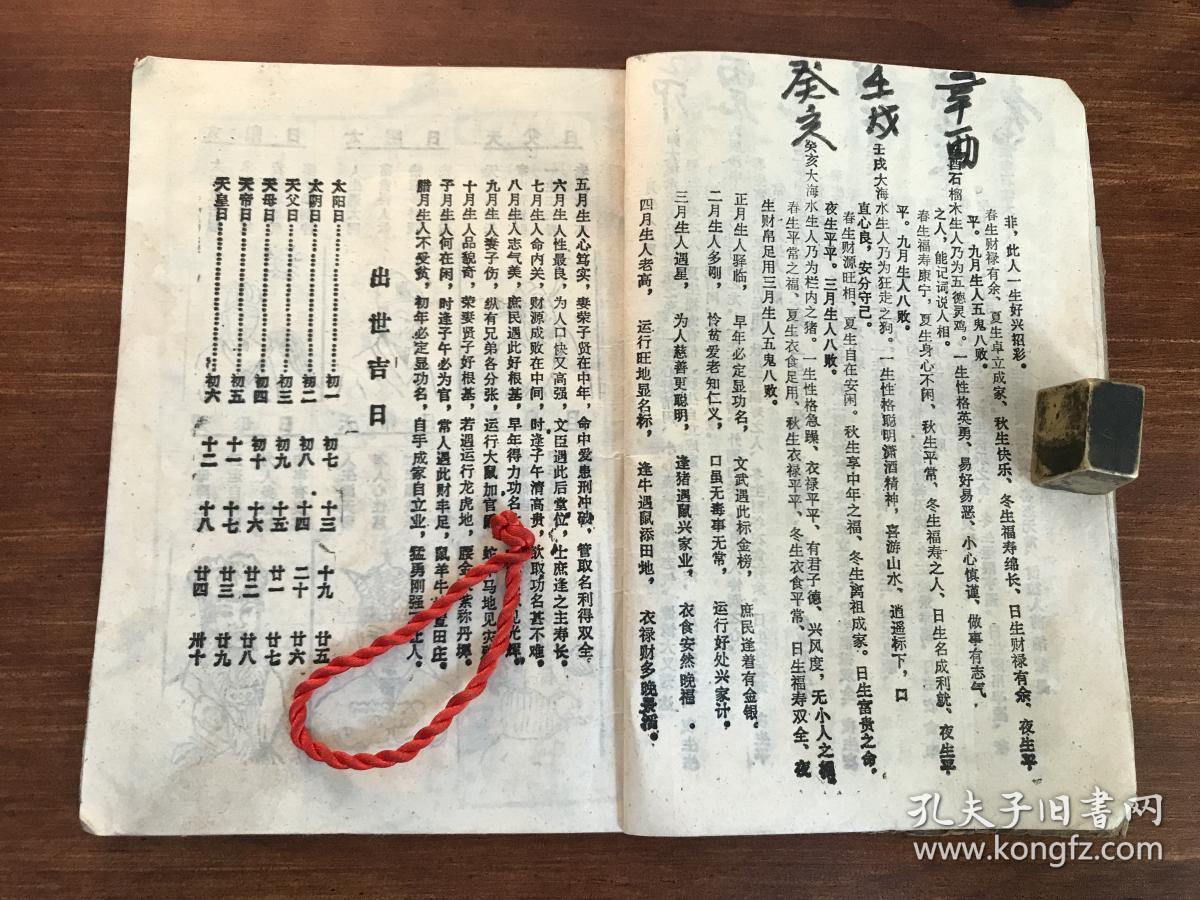 辛酉
壬戌
癸亥
非，此人一生好兴招彩。
春生财禄有余、夏生卓立成家、秋生快乐、冬生福寿绵长、日生财禄有余、夜生平
平。九月生人五鬼八败。
酉石榴木生人乃为五德灵鸡。一生性格英勇、易好易恶、小心慎谨、做事有志气
之人，能记词说人相。
春生福寿康宁，夏生身心不闲、秋生平常、冬生福寿之人、日生名成利就、夜生平
平。九月生人八败。
壬戌大海水生人乃为狂走之狗。一生性格聪明潇洒精神，喜游山水、逍遥标下，口
直心良，安分守己。
春生财源旺相、夏生自在安闲。秋生享中年之福、冬生离祖成家。日生富贵之命。
夜生平平。三月生人八败。
癸亥大海水生人乃为栏内之猪。一生性格急躁、衣禄平平、有君子德、兴风度，无小人之
春生平常之福、夏生衣食足用、秋生衣禄平平、冬生衣食平常、日生福寿双全、夜
生财帛足用三月生人五鬼八败。
正月生人驿临，早年必定显功名，文武遇此标金榜，庶民逢着有金银。
二月生人多刚，怜贫爱老知仁义，口虽无毒事无常，运行好处兴家计，
三月生人遇星，为人慈善更聪明，逢猪遇鼠兴家业，衣食安然晚福。
四月生人老高，运行旺地显名标，逢牛遇鼠添田地，衣禄财多晚景福。
五月生人心笃实，妻荣子贤在中年，命中爱患刑冲破，管取名利得双全。
六月生人性最良，为人口快又高强，文臣遇此后堂位，士庶逢之主寿长。
七月生人命内关，财源成败在中间，时逢子午清高贵，欲取功名甚不难。
八月生人志气美，庶民遇此好根基，早年得力功名 光辉。
九月生人妻子伤，纵有兄弟各分张，运行大鼠加官 马地见灾
十月生人品貌奇，荣妻贤子好根基，若遇运行龙虎地，腰金 紫称丹墀。
子月生人何在闲，时逢子午必为官，常人遇此财丰足，鼠羊牛 置田庄。
腊月生人不受贫，初年必定显功名，自手成家自立业，猛勇刚强 人。
出世吉日
太阳日 初一 初七 十三 十九 廿五
太阴日 初二 初八 十四 二十 廿六
天父日 初三 初九 十五 廿一 廿七
天母日 初四 初十 十六 廿二 廿八
天帝日 初五 十一 十七 廿三 廿九
天皇日 初六 十二 十八 廿四 卅十
孔夫子旧书网
www.kongfz.com